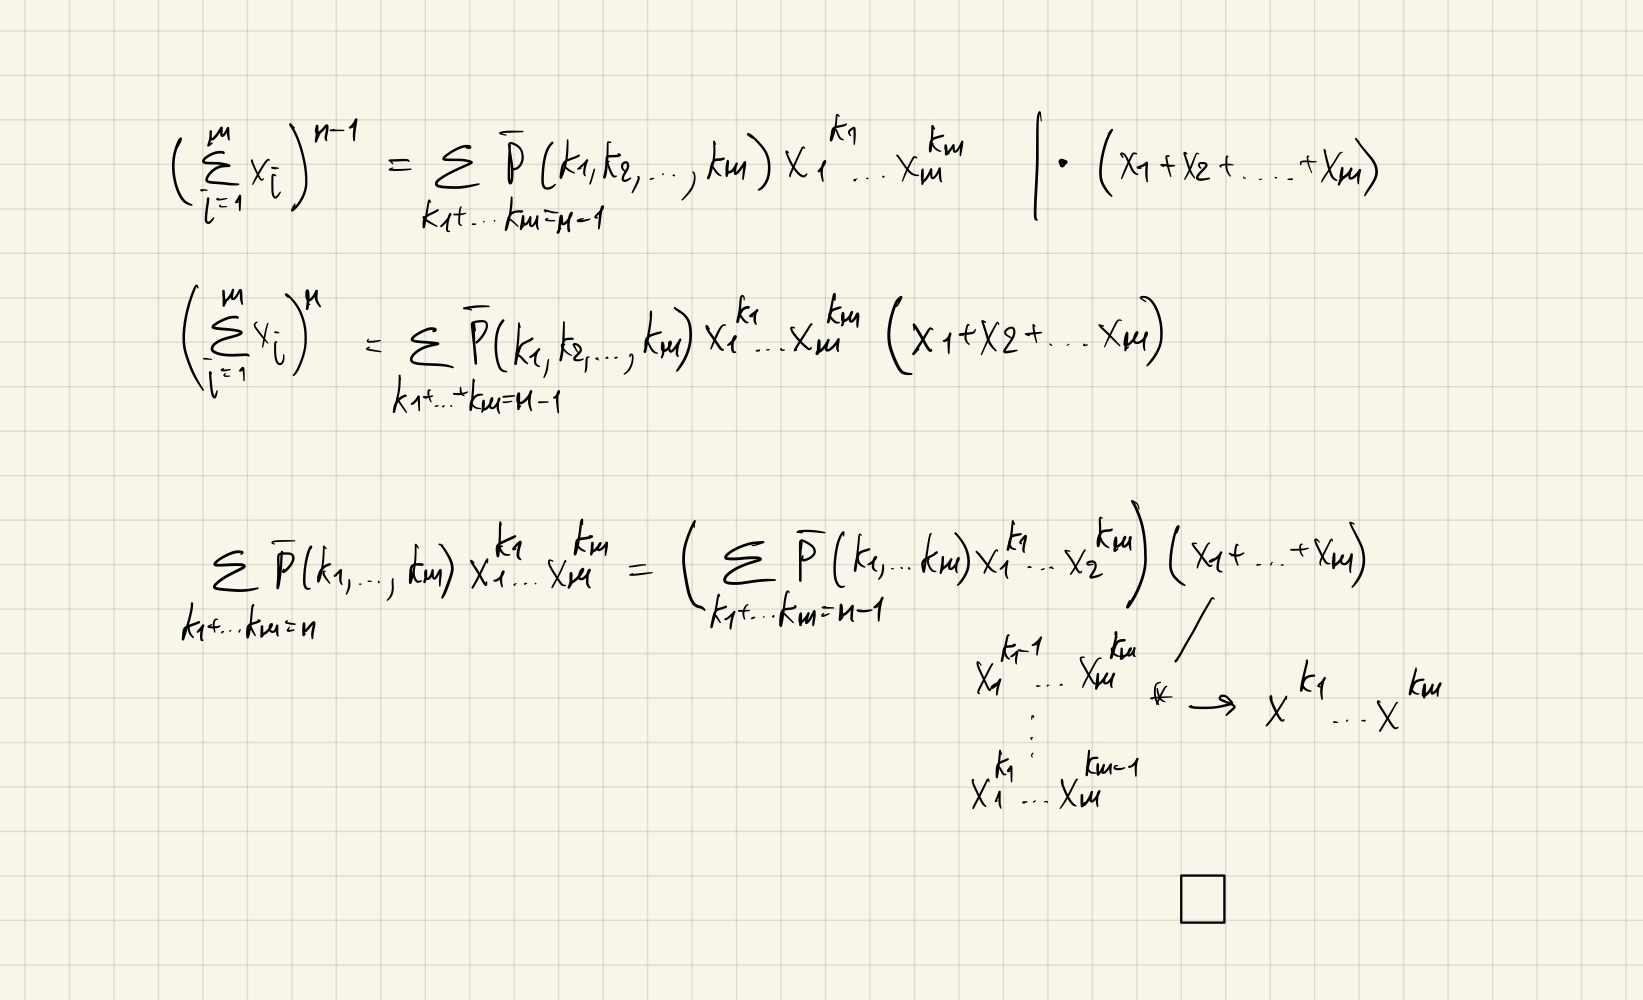 (∑_{i=1}^{m} x_i)^{n-1} = ∑_{k1+...km=n-1} P̄(k1,k2,...,km) x1^{k1} ... xm^{km} | · (x1+x2+.....+xm)
(∑_{i=1}^{m} x_i)^{n} = ∑_{k1+...+km=n-1} P̄(k1,k2,...,km) x1^{k1} ... xm^{km} (x1+x2+...xm)
∑_{k1+...km=n} P̄(k1,...,km) x1^{k1} ... xm^{km} = (∑_{k1+...km=n-1} P̄(k1,...km) x1^{k1} ... x2^{km}) (x1+...+xm)
x1^{k1-1} ... xm^{km} * → x^{k1} ... x^{km}
⋮
x1^{k1} ... xm^{km-1}
□